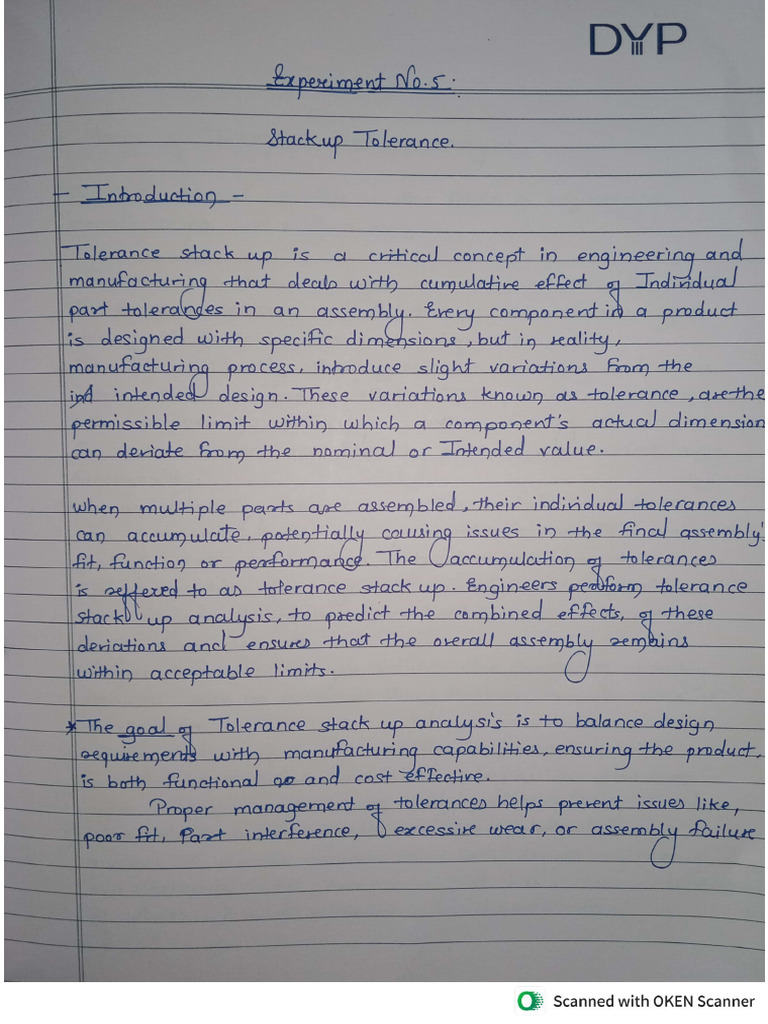 DYP
Experiment No.5:
Stack up Tolerance.
- Introduction -
Tolerance stack up is a critical concept in engineering and
manufacturing that deals with cumulative effect of Individual
part tolerances in an assembly. Every component in a product
is designed with specific dimensions, but in reality,
manufacturing process, introduce slight variations from the
intended design. These variations known as tolerance, are the
permissible limit within which a component's actual dimension
can deviate from the nominal or Intended value.
When multiple parts are assembled, their individual tolerances
can accumulate, potentially causing issues in the final assembly's
fit, function or performance. The accumulation of tolerances
is reffered to as tolerance stack up. Engineers perform tolerance
stack up analysis, to predict the combined effects, of these
deviations and ensures that the overall assembly remains
within acceptable limits.
* The goal of Tolerance stack up analysis is to balance design
requirements with manufacturing capabilities, ensuring the product,
is both functional and cost effective.
Proper management of tolerances helps prevent issues like,
poor fit, Part interference, excessive wear, or assembly failure
Scanned with OKEN Scanner